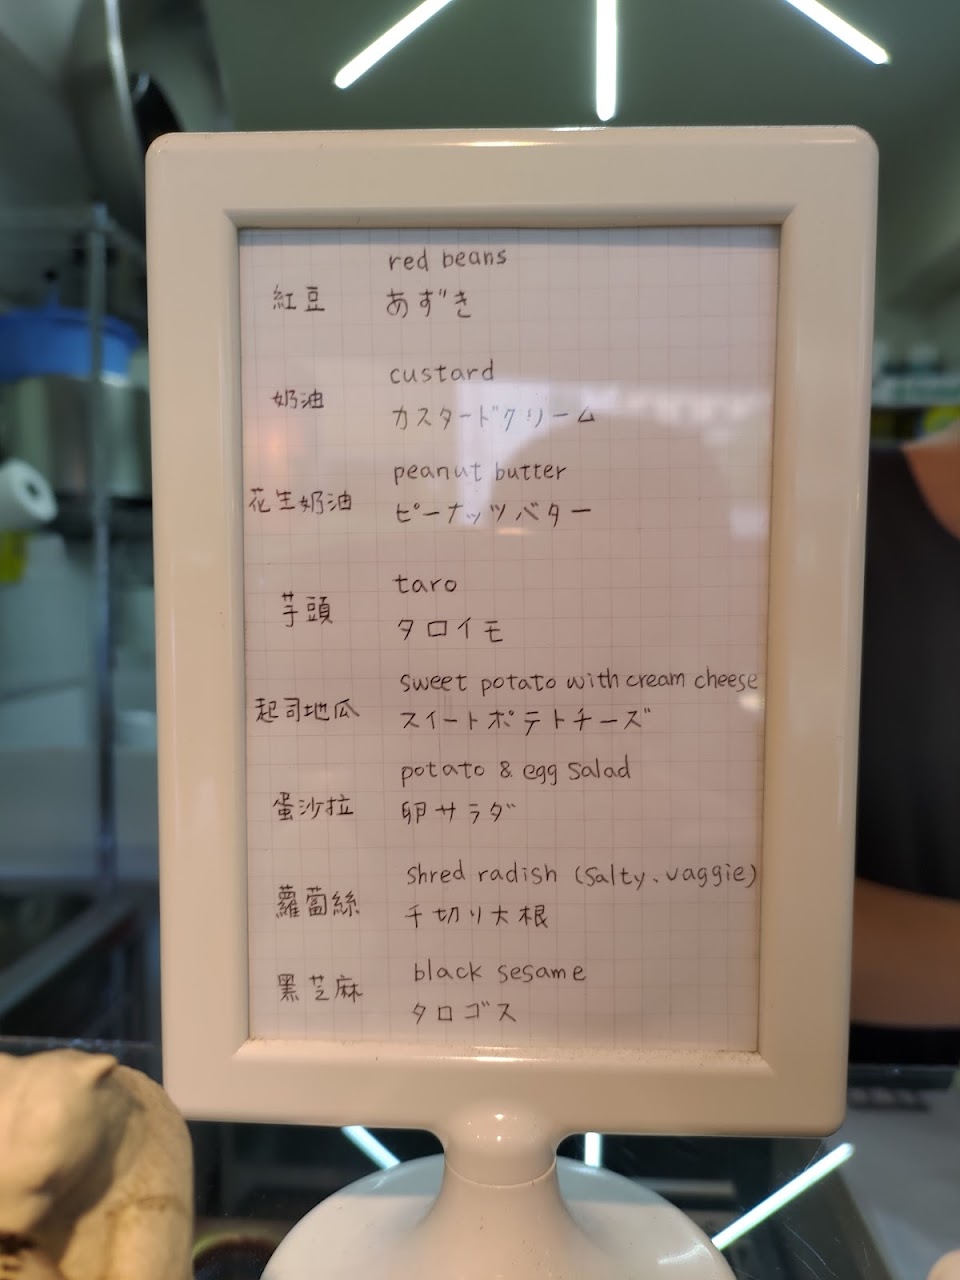 紅豆
red beans
あずき
奶油
custard
カスタードクリーム
花生奶油
peanut butter
ピーナッツバター
芋頭
taro
タロイモ
起司地瓜
sweet potato with cream cheese
スイートポテトチーズ
蛋沙拉
potato & egg salad
卵サラダ
蘿蔔絲
shred radish (salty、vaggie)
千切り大根
黑芝麻
black sesame
タロゴス